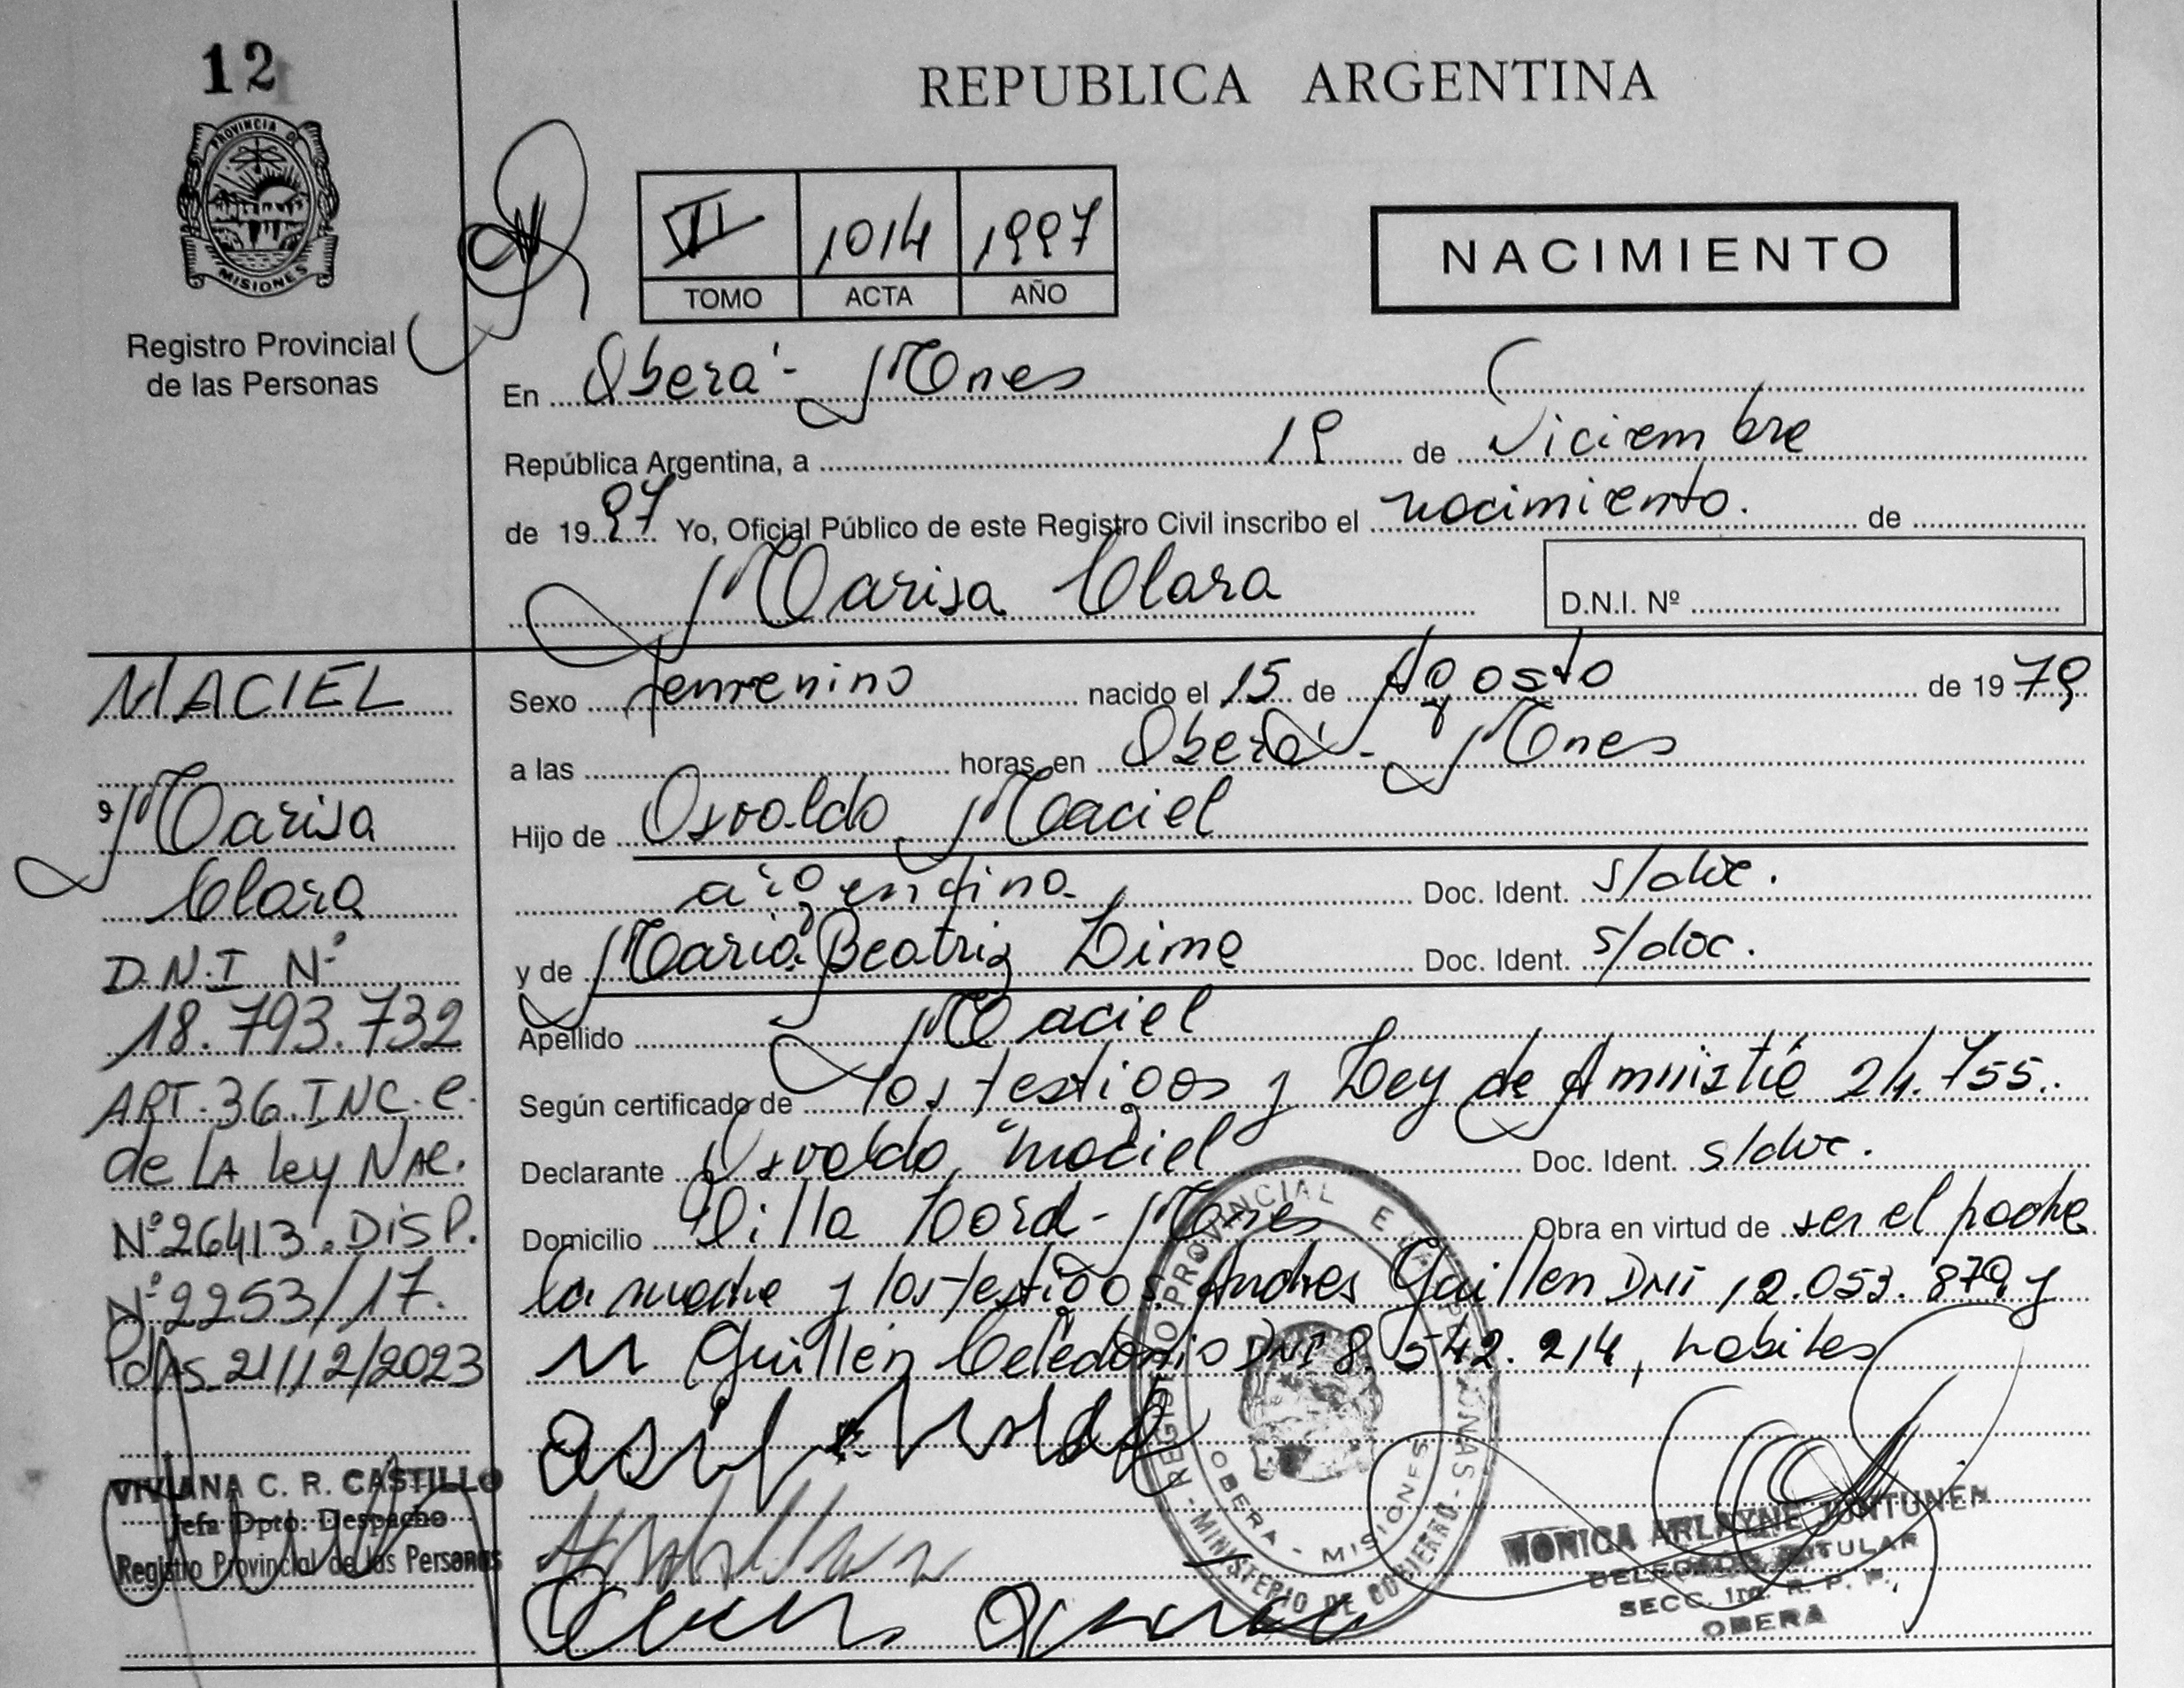 12
PROVINCIA DE
MISIONES
Registro Provincial
de las Personas
REPUBLICA ARGENTINA
VI 1014 1997
TOMO ACTA AÑO
NACIMIENTO
En Oberá - Mnes
República Argentina, a 19 de Diciembre
de 1997 Yo, Oficial Público de este Registro Civil inscribo el nacimiento. de
Marisa Clara
D.N.I. Nº
MACIEL
Marisa
Clara
D.N.I Nº
18.793.732
ART. 36. INC. e.
de LA ley NAC.
Nº 26413. DISP.
Nº 2253/17.
Pdas. 21/12/2023
VIVIANA C. R. CASTILLO
Jefa Dpto. Despacho
Registro Provincial de las Personas
Sexo femenino nacido el 15 de Agosto de 1979
a las horas en Oberá - Mnes
Hijo de Osvaldo Maciel
argentino Doc. Ident. s/doc.
y de María Beatriz Lima Doc. Ident. s/doc.
Apellido Maciel
Según certificado de los testigos y Ley de Amnistía 24.755.
Declarante Osvaldo Maciel Doc. Ident. s/doc.
Domicilio Villa Bord - Mnes Obra en virtud de ser el padre
la madre y los testigos Andres Guillen DNI 12.053.879 y
Guillén Celedonio DNI 8.542.214, habiles
REGISTRO PROVINCIAL DE LAS PERSONAS - MINISTERIO DE GOBIERNO -
OBERA - MISIONES
MONICA ARLAYNE JUNTUNEN
DELEGADA TITULAR
SECC. 1ra. R. P. P.
OBERA